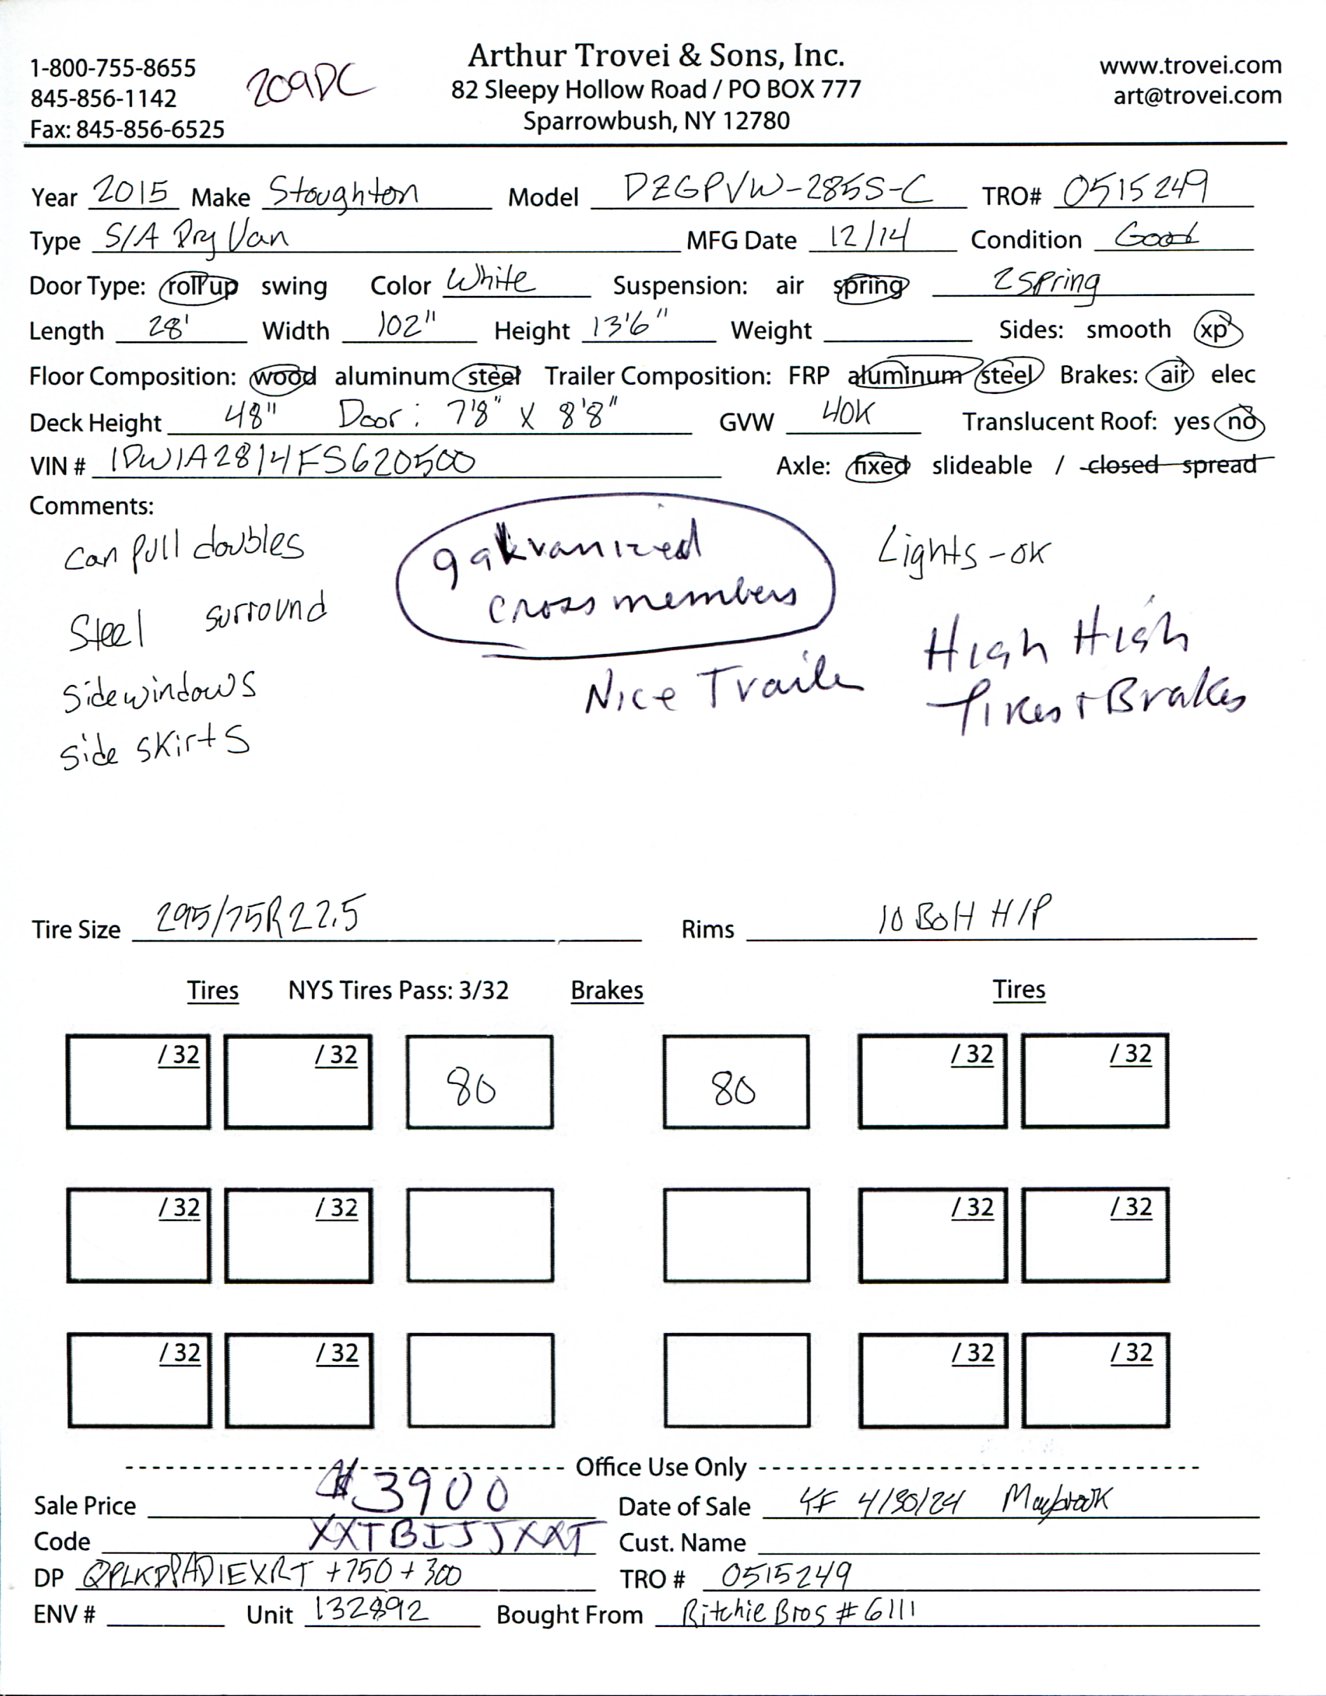 1-800-755-8655
845-856-1142
Fax: 845-856-6525
209DC
Arthur Trovei & Sons, Inc.
82 Sleepy Hollow Road / PO BOX 777
Sparrowbush, NY 12780
www.trovei.com
art@trovei.com
Year 2015 Make Stoughton Model DZGPVW-285S-C TRO# 0515249
Type S/A Dry Van MFG Date 12/14 Condition Good
Door Type: roll up swing Color White Suspension: air spring 2 Spring
Length 28' Width 102" Height 13'6" Weight Sides: smooth xp
Floor Composition: wood aluminum steel Trailer Composition: FRP aluminum steel Brakes: air elec
Deck Height 48" Door: 7'8" X 8'8" GVW 40K Translucent Roof: yes no
VIN # 1DW1A2814FS620500 Axle: fixed slideable / closed spread
Comments:
can pull doubles
Steel surround
Sidewindows
Side skirts
galvanized
crossmembers
Nice Trailer
Lights - OK
High High
Tires + Brakes
Tire Size 295/75R22.5 Rims 10 BOH H/P
Tires NYS Tires Pass: 3/32 Brakes Tires
/ 32 / 32 80 80 / 32 / 32
/ 32 / 32 / 32 / 32
/ 32 / 32 / 32 / 32
Office Use Only
Sale Price $3900 Date of Sale YF 4/30/24 Maybrook
Code XXTBIJJXXT Cust. Name
DP QPLKDPADIEXRT +750 + 300 TRO # 0515249
ENV # Unit 132892 Bought From Ritchie Bros # 6111